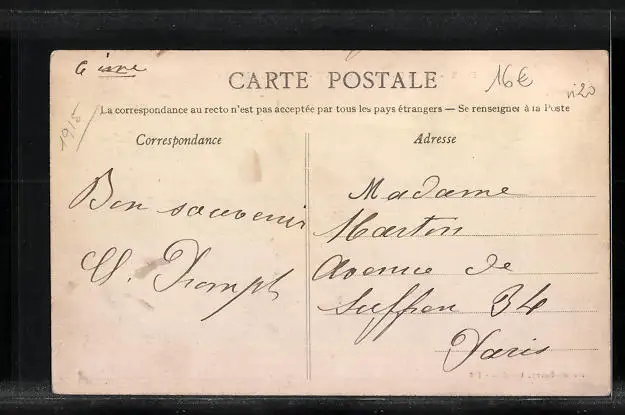 16€
n20
CARTE POSTALE
1915
La correspondance au recto n'est pas acceptée par tous les pays étrangers — Se renseigner à la Poste
Correspondance
Adresse
Bon souvenir
Madame
Marton
Avenue de
Suffren 34
Paris